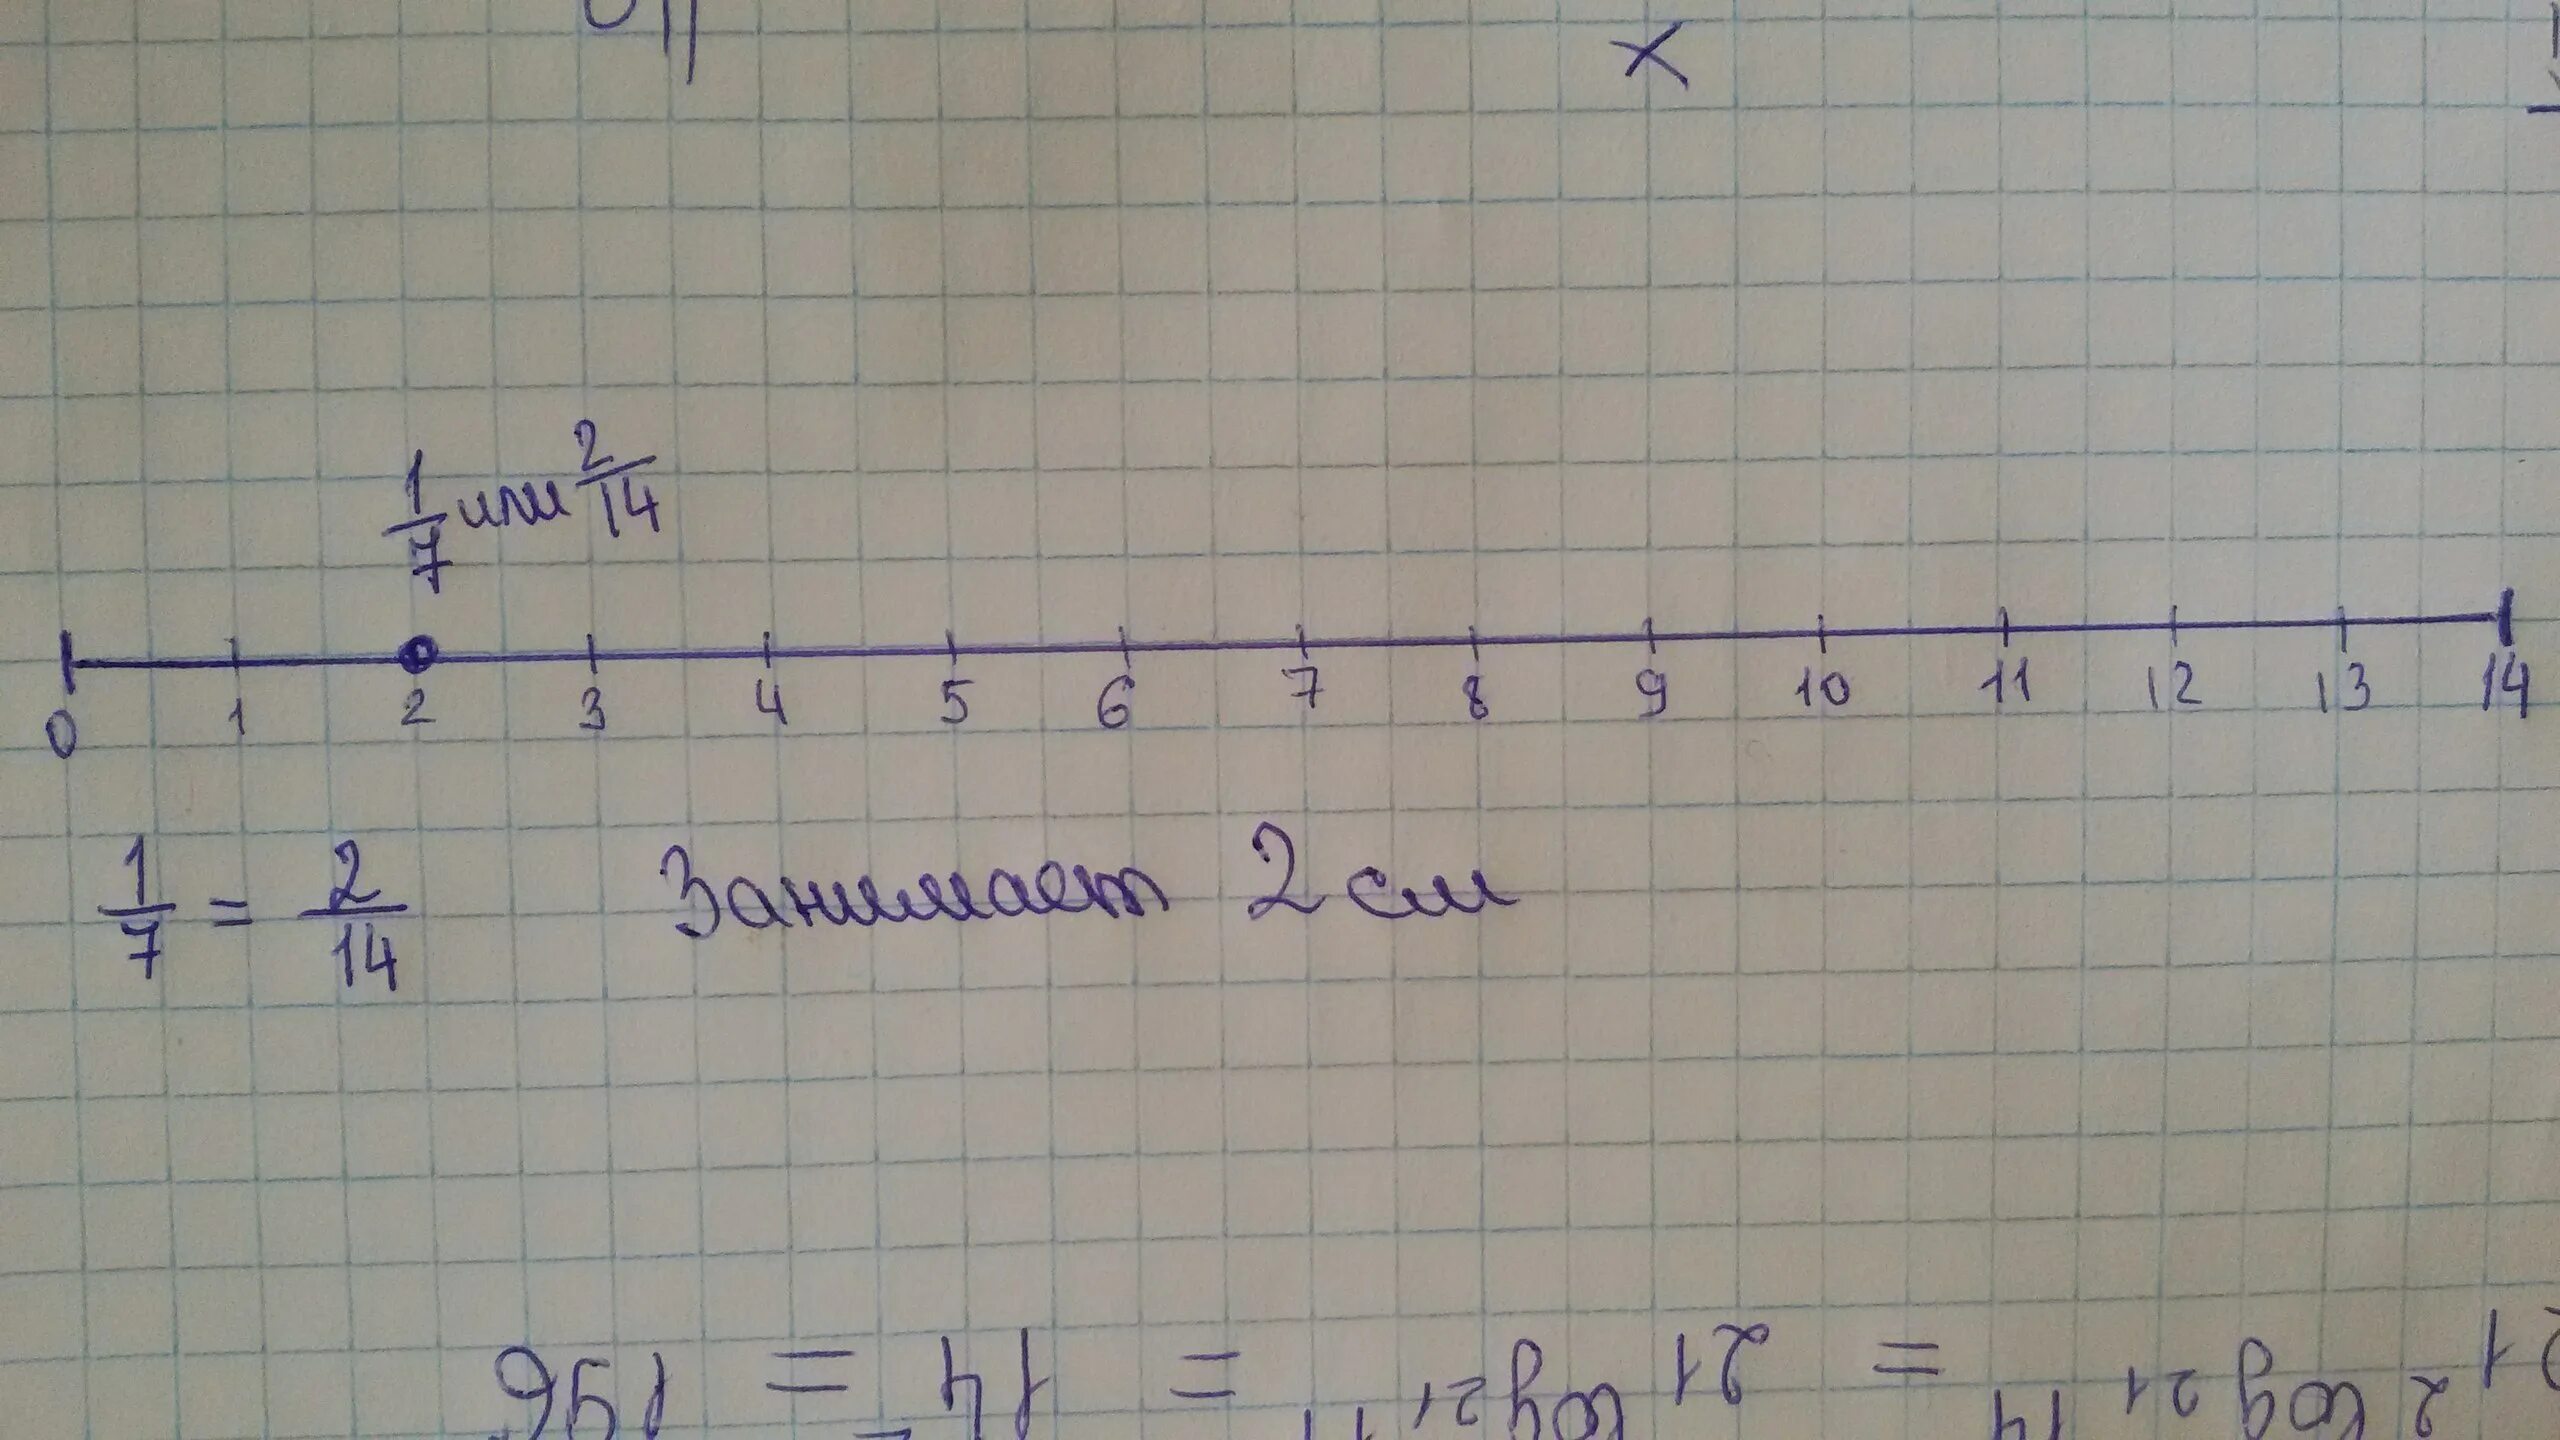 x
1/7 или 2/14
0 1 2 3 4 5 6 7 8 9 10 11 12 13 14
1/7 = 2/14 Занимает 2 см
= 21 = 14 = 196